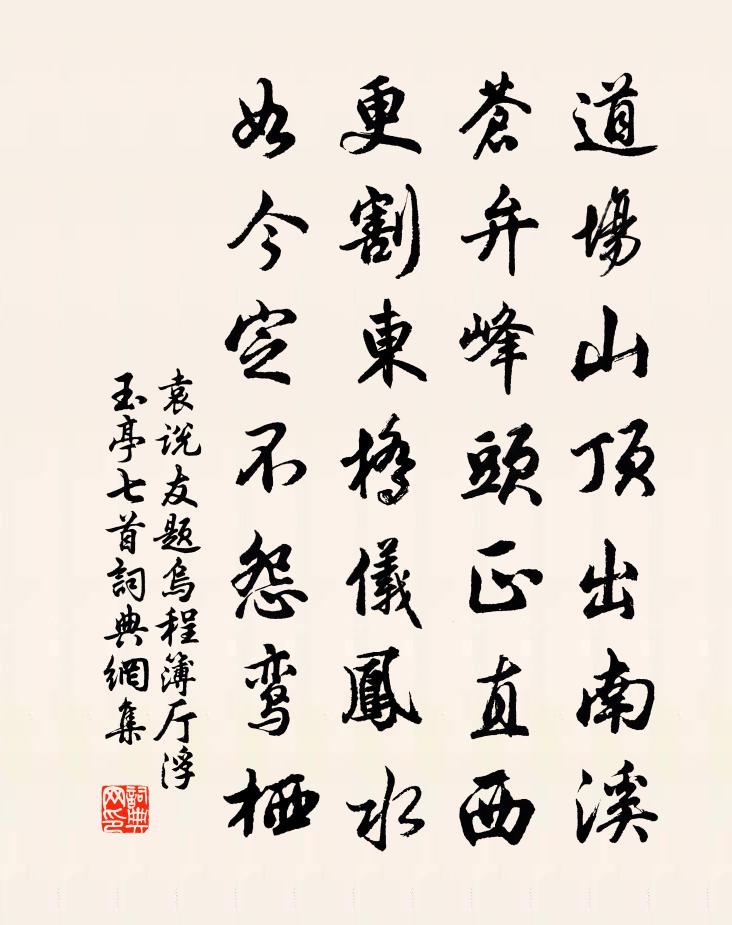 道場山頂出南溪
蒼弁峰頭正直西
更割東橋儀鳳水
如今定不怨鸾栖
袁说友题乌程簿厅浮
玉亭七首詞典網集
詞典网印